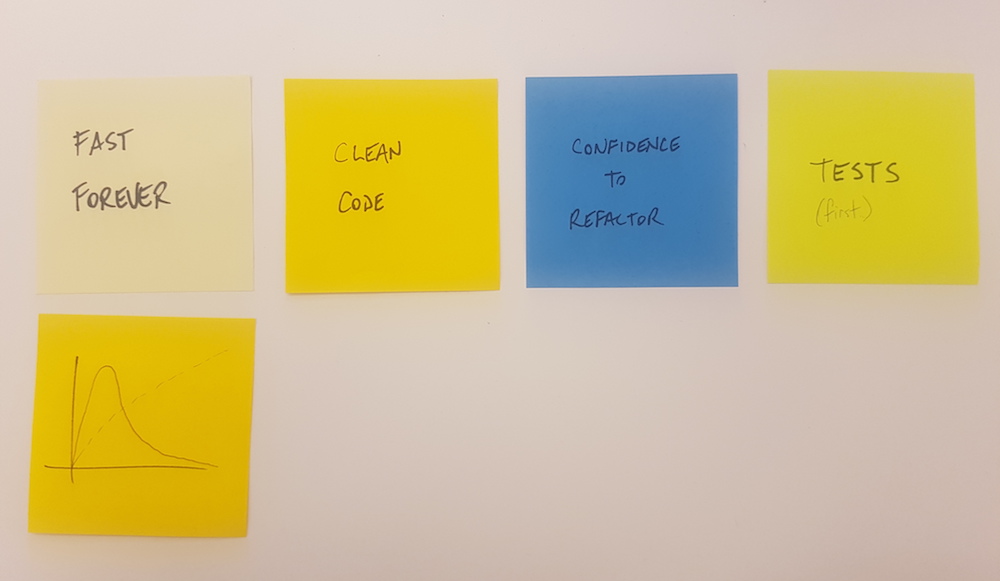 FAST
FOREVER
CLEAN
CODE
CONFIDENCE
TO
REFACTOR
TESTS
(first.)